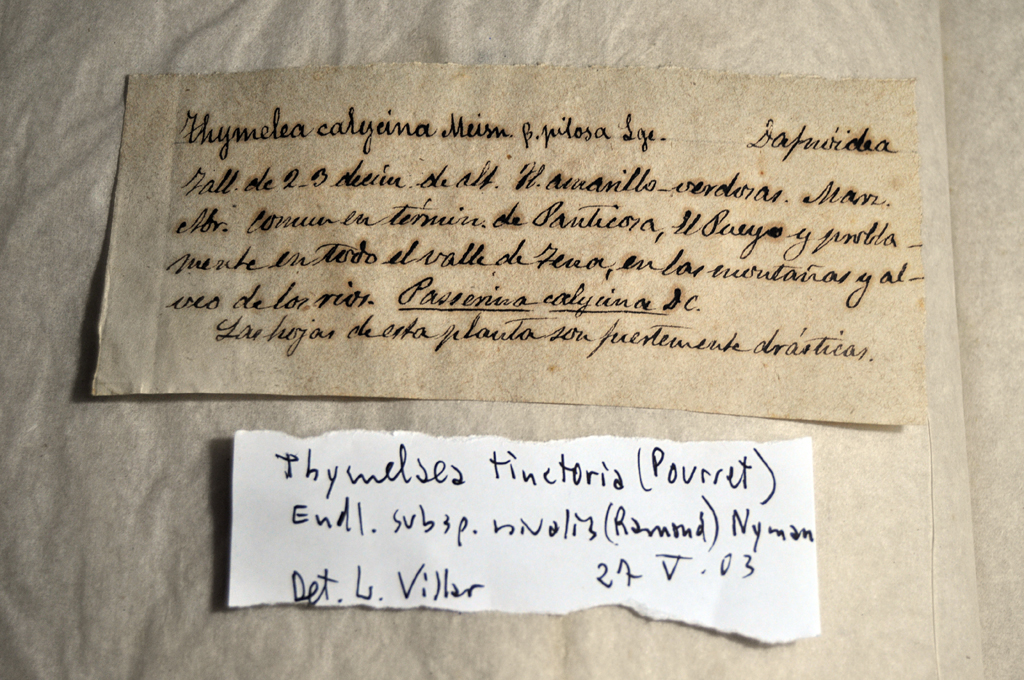 Thymelea calycina Meisn. β. pilosa Lge. Dafnóidea
Tall. de 2-3 decím. de alt. Fl. amarillo-verdosas. Marz.
Abr. Comun en términ. de Panticosa, El Pueyo y probla-
mente en todo el valle de Tena, en las montañas y al-
veo de los rios. Passerina calycina DC.
Las hojas de esta planta son fuertemente drásticas.
Thymelaea tinctoria (Pourret)
Endl. subsp. nivalis (Ramond) Nyman
Det. L. Villar 27 V. 03